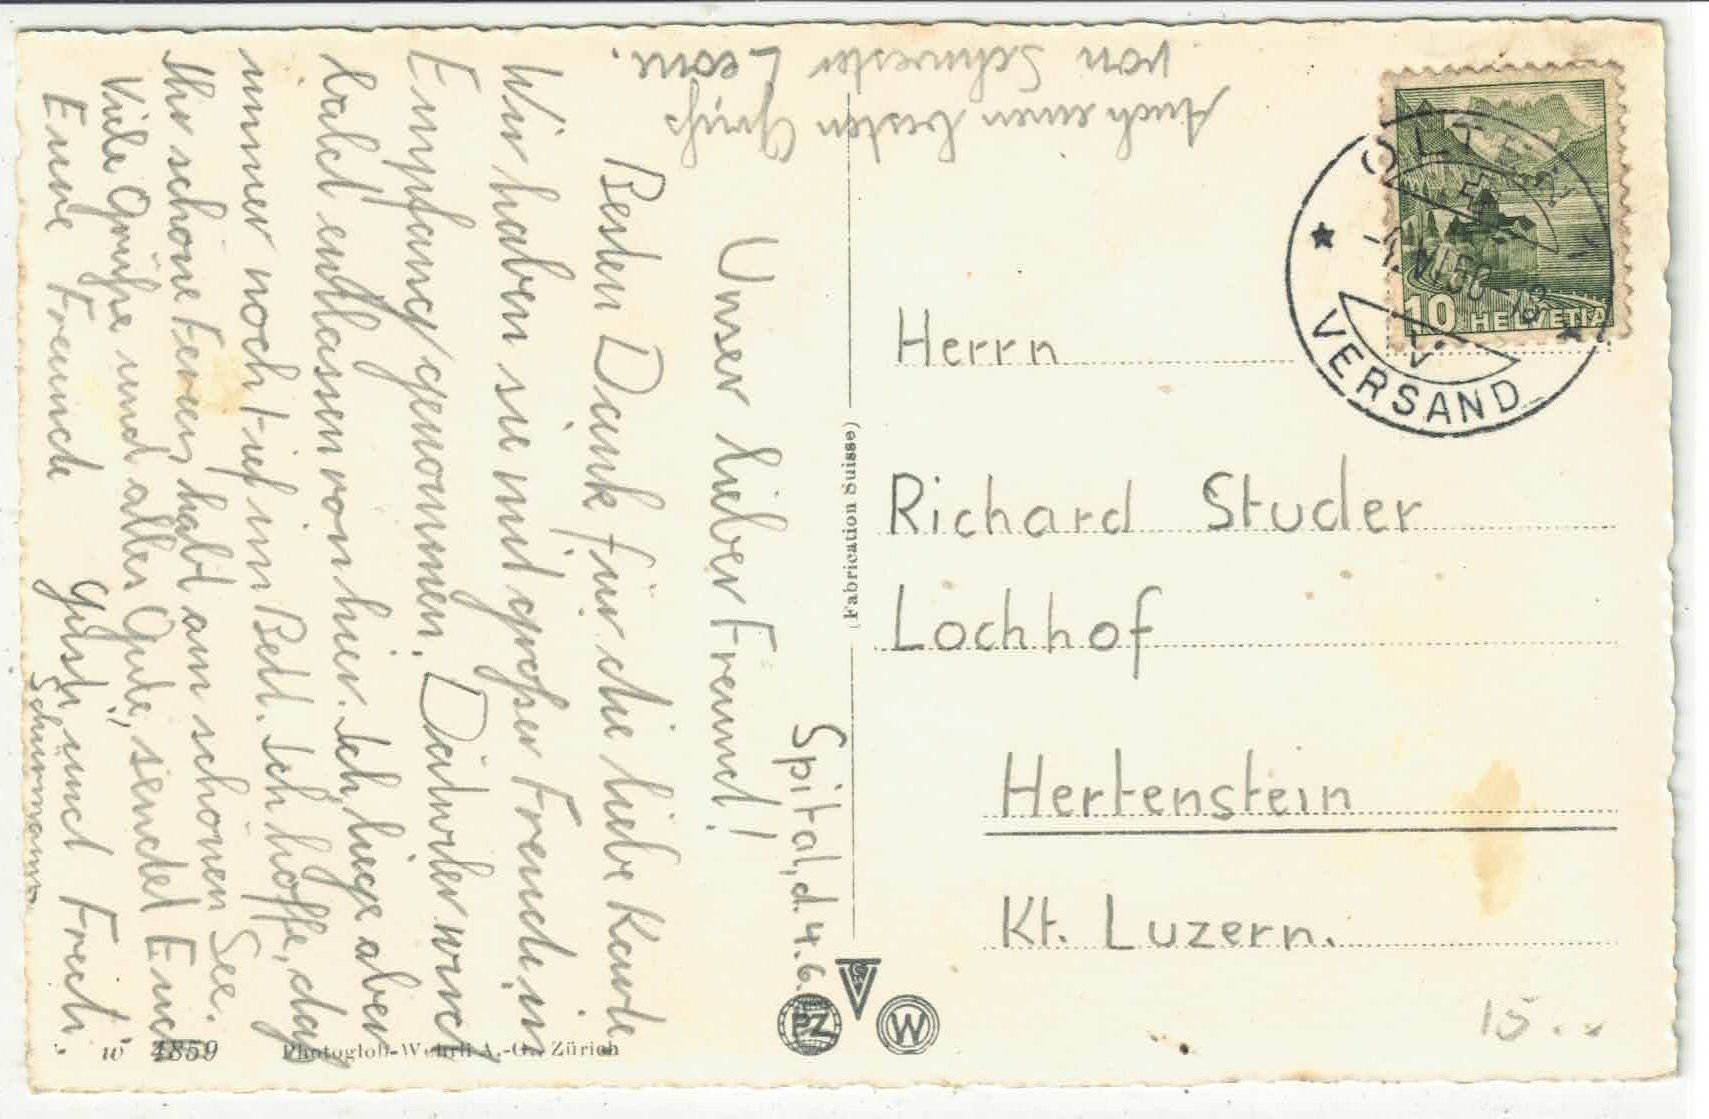 Spital, d. 4. 6.
Unser lieber Freund!
Besten Dank für die liebe Karte
Wir haben sie mit großer Freude in
Empfang genommen. Dätwiler wird
bald entlassen von hier. Ich liege aber
immer noch tief im Bett. Ich hoffe, daß
Ihr schöne Ferien habt am schönen See.
Viele Grüße und alles Gute, sendet Euch
Eure Freunde Gusti und Fredi
Schürmann
Auch einen besten Gruß
von Schwester Leoni.
w 4859 Photoglob-Wehrli A.-G., Zürich
(Fabrication Suisse)
PZ
W
Herrn
Richard Studer
Lochhof
Hertenstein
Kt. Luzern.
10 HELVETIA
OLTEN
VERSAND